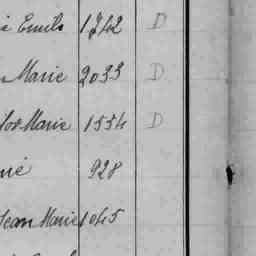 Emile 1742 D
Marie 2033 D
Marie 1554 D
928
Jean Marie 1045